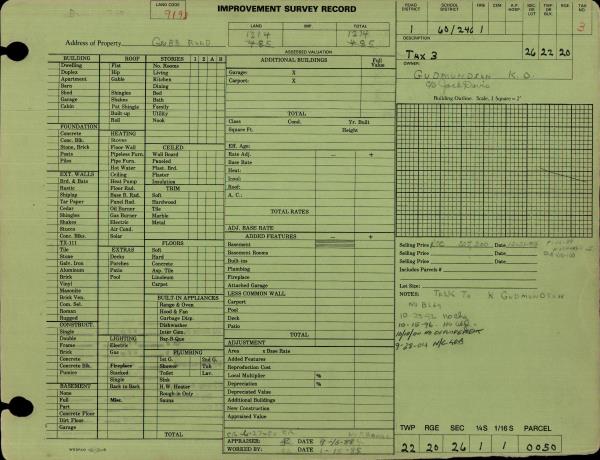 LAND CODE
IMPROVEMENT SURVEY RECORD
LAND IMP. TOTAL
1214 1214
485 485
Address of Property GUBB ROAD
ASSESSED VALUATION
ROAD DISTRICT SCHOOL DISTRICT HRS CEM A.P. HOSP. SEC OR LOT TWP RGE TAX NO
60/246 1 3
DESCRIPTION
TAX 3 26 22 20
OWNER:
GUDMUNDSEN K.O.
% Jack Davis
Building Outline. Scale, 1 Square = 2'
BUILDING ROOF STORIES 1 2 A B
Dwelling Flat No. Rooms
Duplex Hip Living
Apartment Gable Kitchen
Barn Dining
Shed Shingles Bed
Garage Shakes Bath
Cabin Pat Shingle Family
Built-up Utility
Roll Nook
FOUNDATION
Concrete HEATING
Conc. Blk. Stoves
Stone, Brick Floor Wall CEILED
Posts Pipeless Furn. Wall Board
Piles Pipe Furn. Paneled
Hot Water Plast. Brd.
EXT. WALLS Ceiling Plaster
Brd. & Bats Heat Pump Insulation
Rustic Floor Rad. TRIM
Shiplap Base B. Rad. Soft
Tar Paper Panel Rad. Hardwood
Cedar Oil Burner Tile
Shingles Gas Burner Marble
Shakes Electric Metal
Stucco Air Cond.
Conc. Blks. Solar
TX-111 FLOORS
Tile EXTRAS Soft
Stone Decks Hard
Galv. Iron Porches Concrete
Aluminum Patio Asp. Tile
Brick Pool Linoleum
Vinyl Carpet
Masonite
Brick Ven. BUILT-IN APPLIANCES
Com. Sel. Range & Oven
Roman Hood & Fan
Rugged Garbage Disp.
CONSTRUCT. Dishwasher
Single Inter Com.
Double LIGHTING Bar-B-Que
Frame Electric
Brick Gas PLUMBING
Concrete 1st G. 2nd G.
Conc. Blk. Fireplace Shower Tub
Pumice Stacked Toilet Lav.
Single Sink
BASEMENT Back to Back H.W. Heater
None Rough-in Only
Full Misc. Sauna
Part
Concrete Floor
Dirt Floor
Garage TOTAL
ADDITIONAL BUILDINGS Full Value
Garage: X
Carport: X
TOTAL
Class Cond. Yr. Built
Square Ft. Height
Eff. Age:
Rate Adj. − +
Base Rate
Heat:
Insul:
Roof:
A. C.:
TOTAL RATES
ADJ. BASE RATE
ADDED FEATURES − +
Basement
Basement Rooms
Built-ins
Plumbing
Fireplace
Attached Garage
LESS COMMON WALL
Carport
Pool
Deck
Patio
TOTAL
ADJUSTMENT
Area x Base Rate
Added Features
Reproduction Cost
Local Multiplier %
Depreciation %
Depreciated Value
Additional Buildings
New Construction
Appraised Value
APPRAISER: DATE
WORKED BY: DATE 1-15-85
Selling Price
Selling Price
Selling Price
Includes Parcels #
Lot Size:
NOTES: TALK TO K GUDMUNDSEN
NO BLDG
10-23-92 no chg
10-15-96 no chg
9-28-04 N/C
TWP RGE SEC ¼S 1/16 S PARCEL
22 20 26 1 1 0050